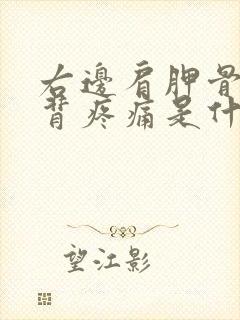 右邊肩胛骨
背疼痛是什
望江影